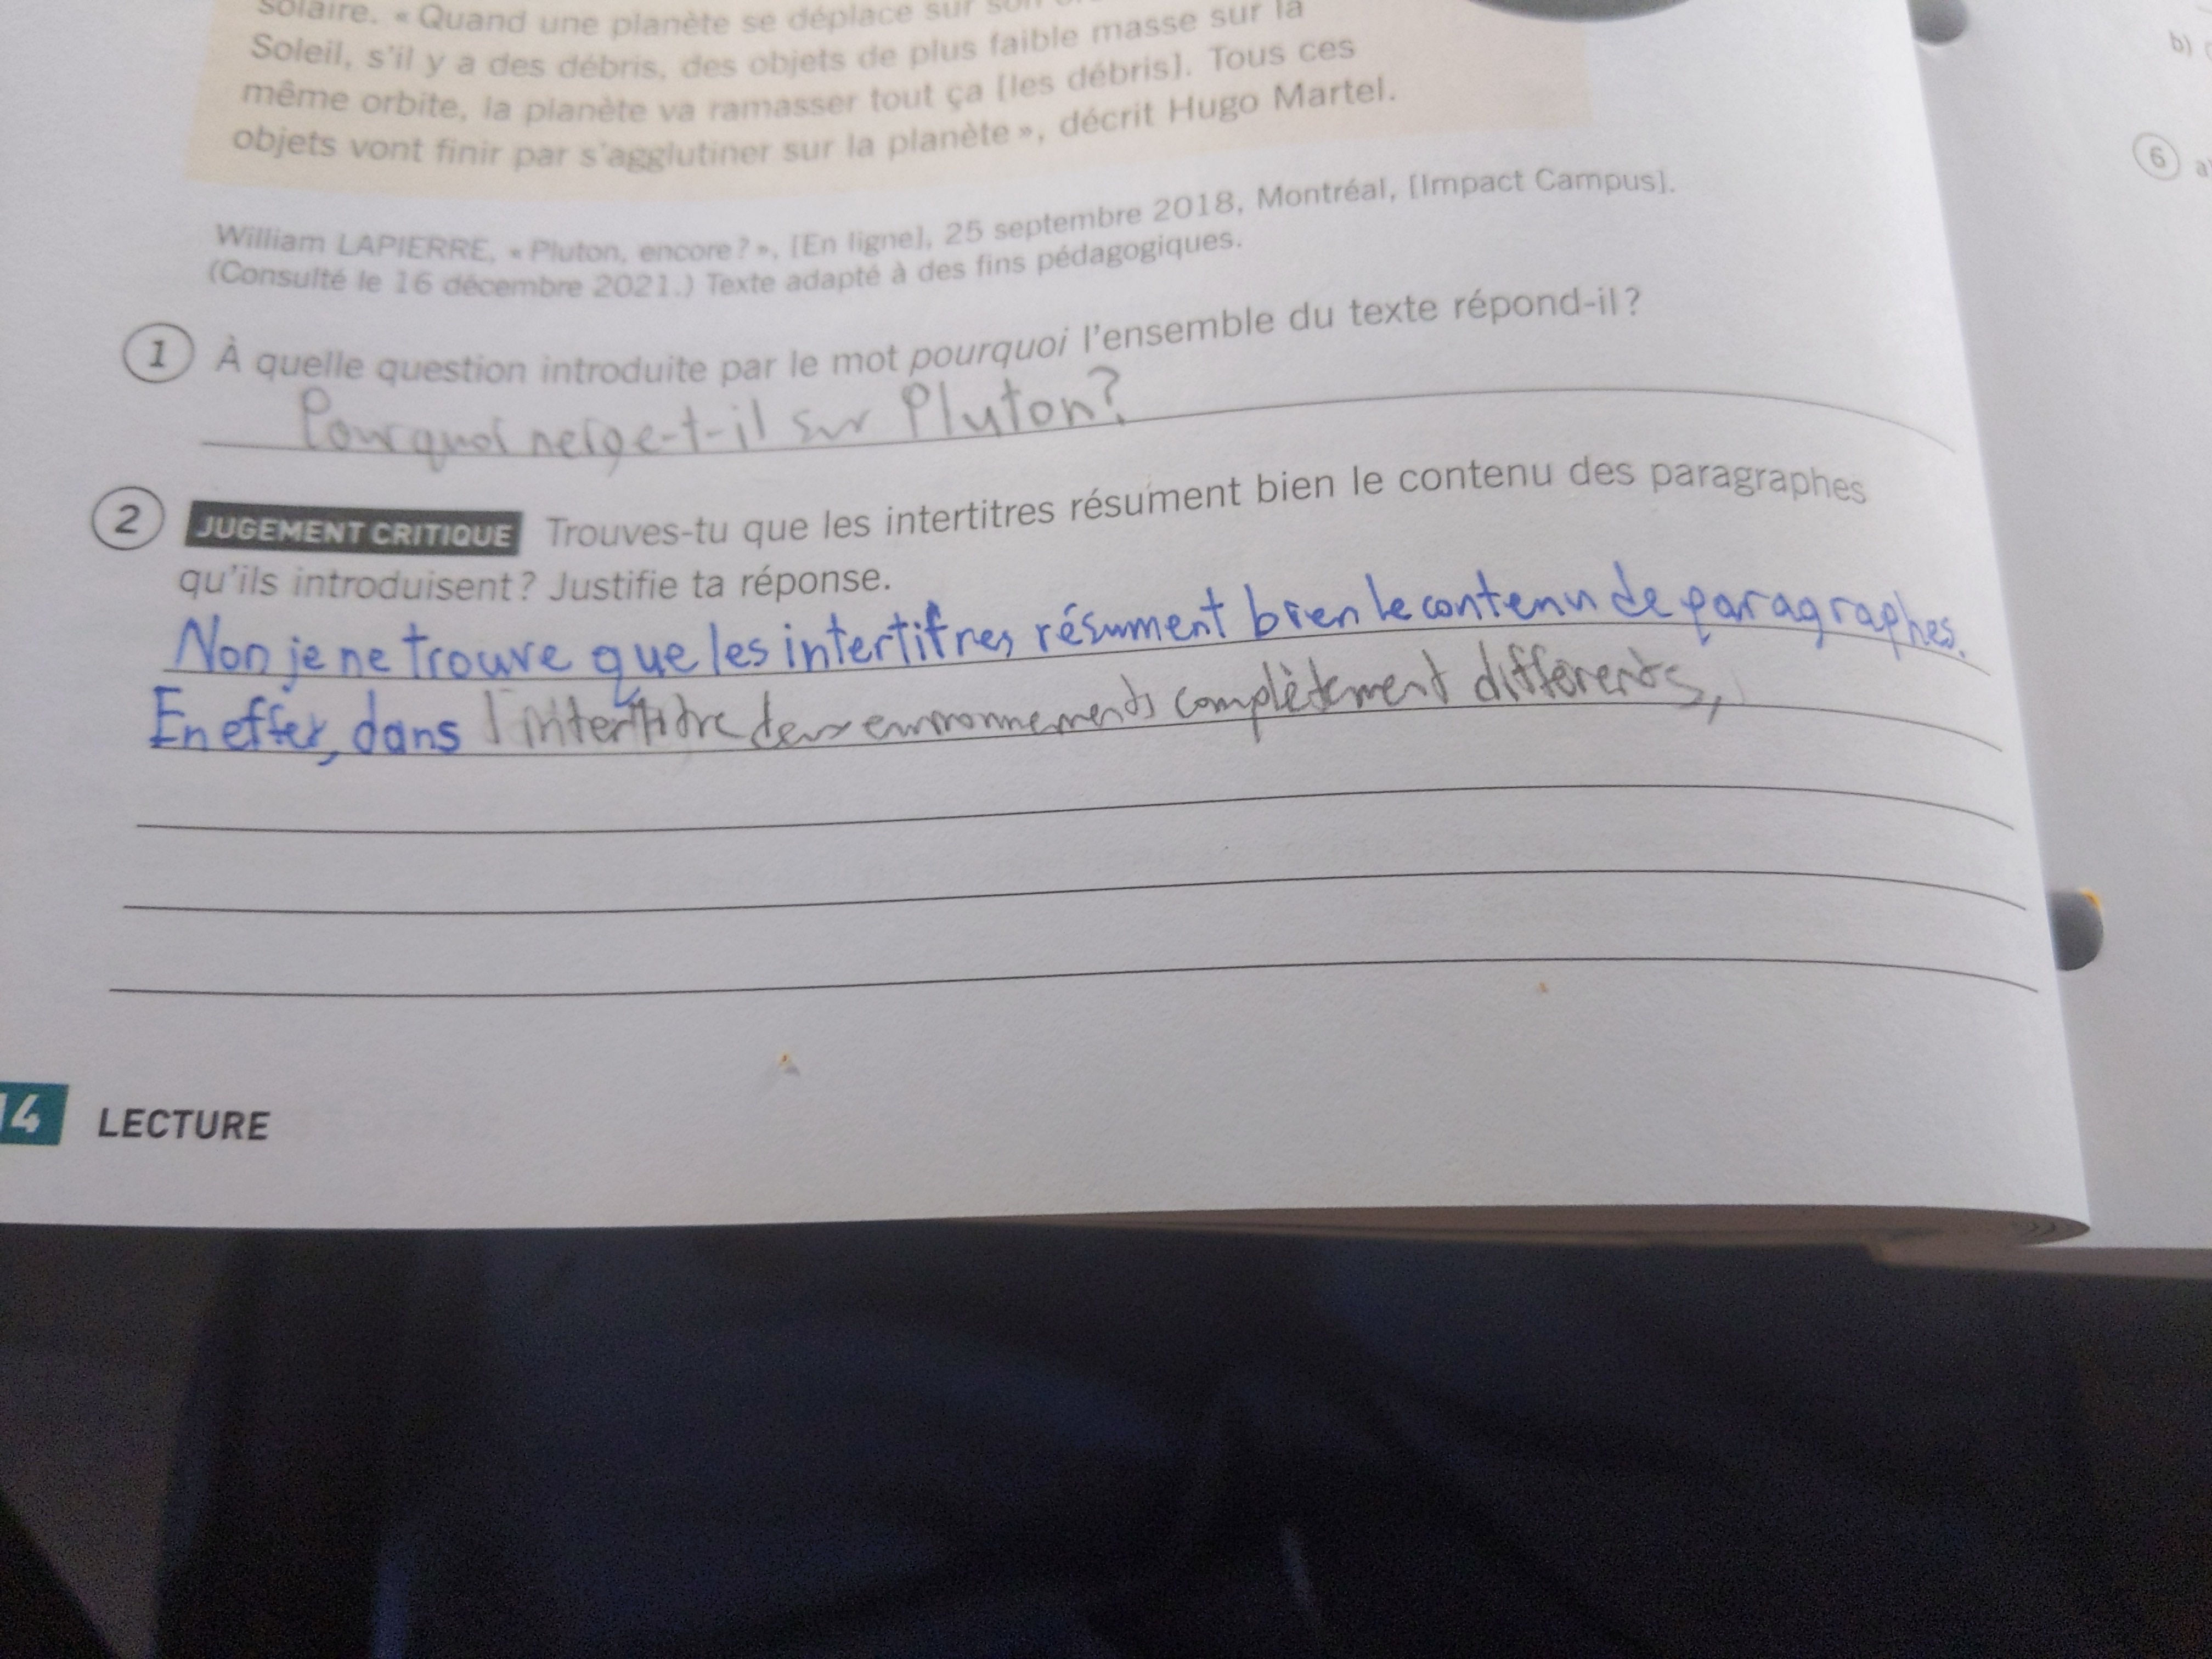 solaire. « Quand une planète se déplace sur
Soleil, s'il y a des débris, des objets de plus faible masse sur la
même orbite, la planète va ramasser tout ça [les débris]. Tous ces
objets vont finir par s'agglutiner sur la planète », décrit Hugo Martel.
William LAPIERRE, « Pluton, encore ? », [En ligne], 25 septembre 2018, Montréal, [Impact Campus].
(Consulté le 16 décembre 2021.) Texte adapté à des fins pédagogiques.
1 À quelle question introduite par le mot pourquoi l'ensemble du texte répond-il ?
Pourquoi neige-t-il sur Pluton?
2 JUGEMENT CRITIQUE Trouves-tu que les intertitres résument bien le contenu des paragraphes
qu'ils introduisent ? Justifie ta réponse.
Non je ne trouve que les intertitres résument bien le contenu de paragraphes.
En effet, dans l'intertitre deux environnements complètement différents,
14 LECTURE
b)
6 a)